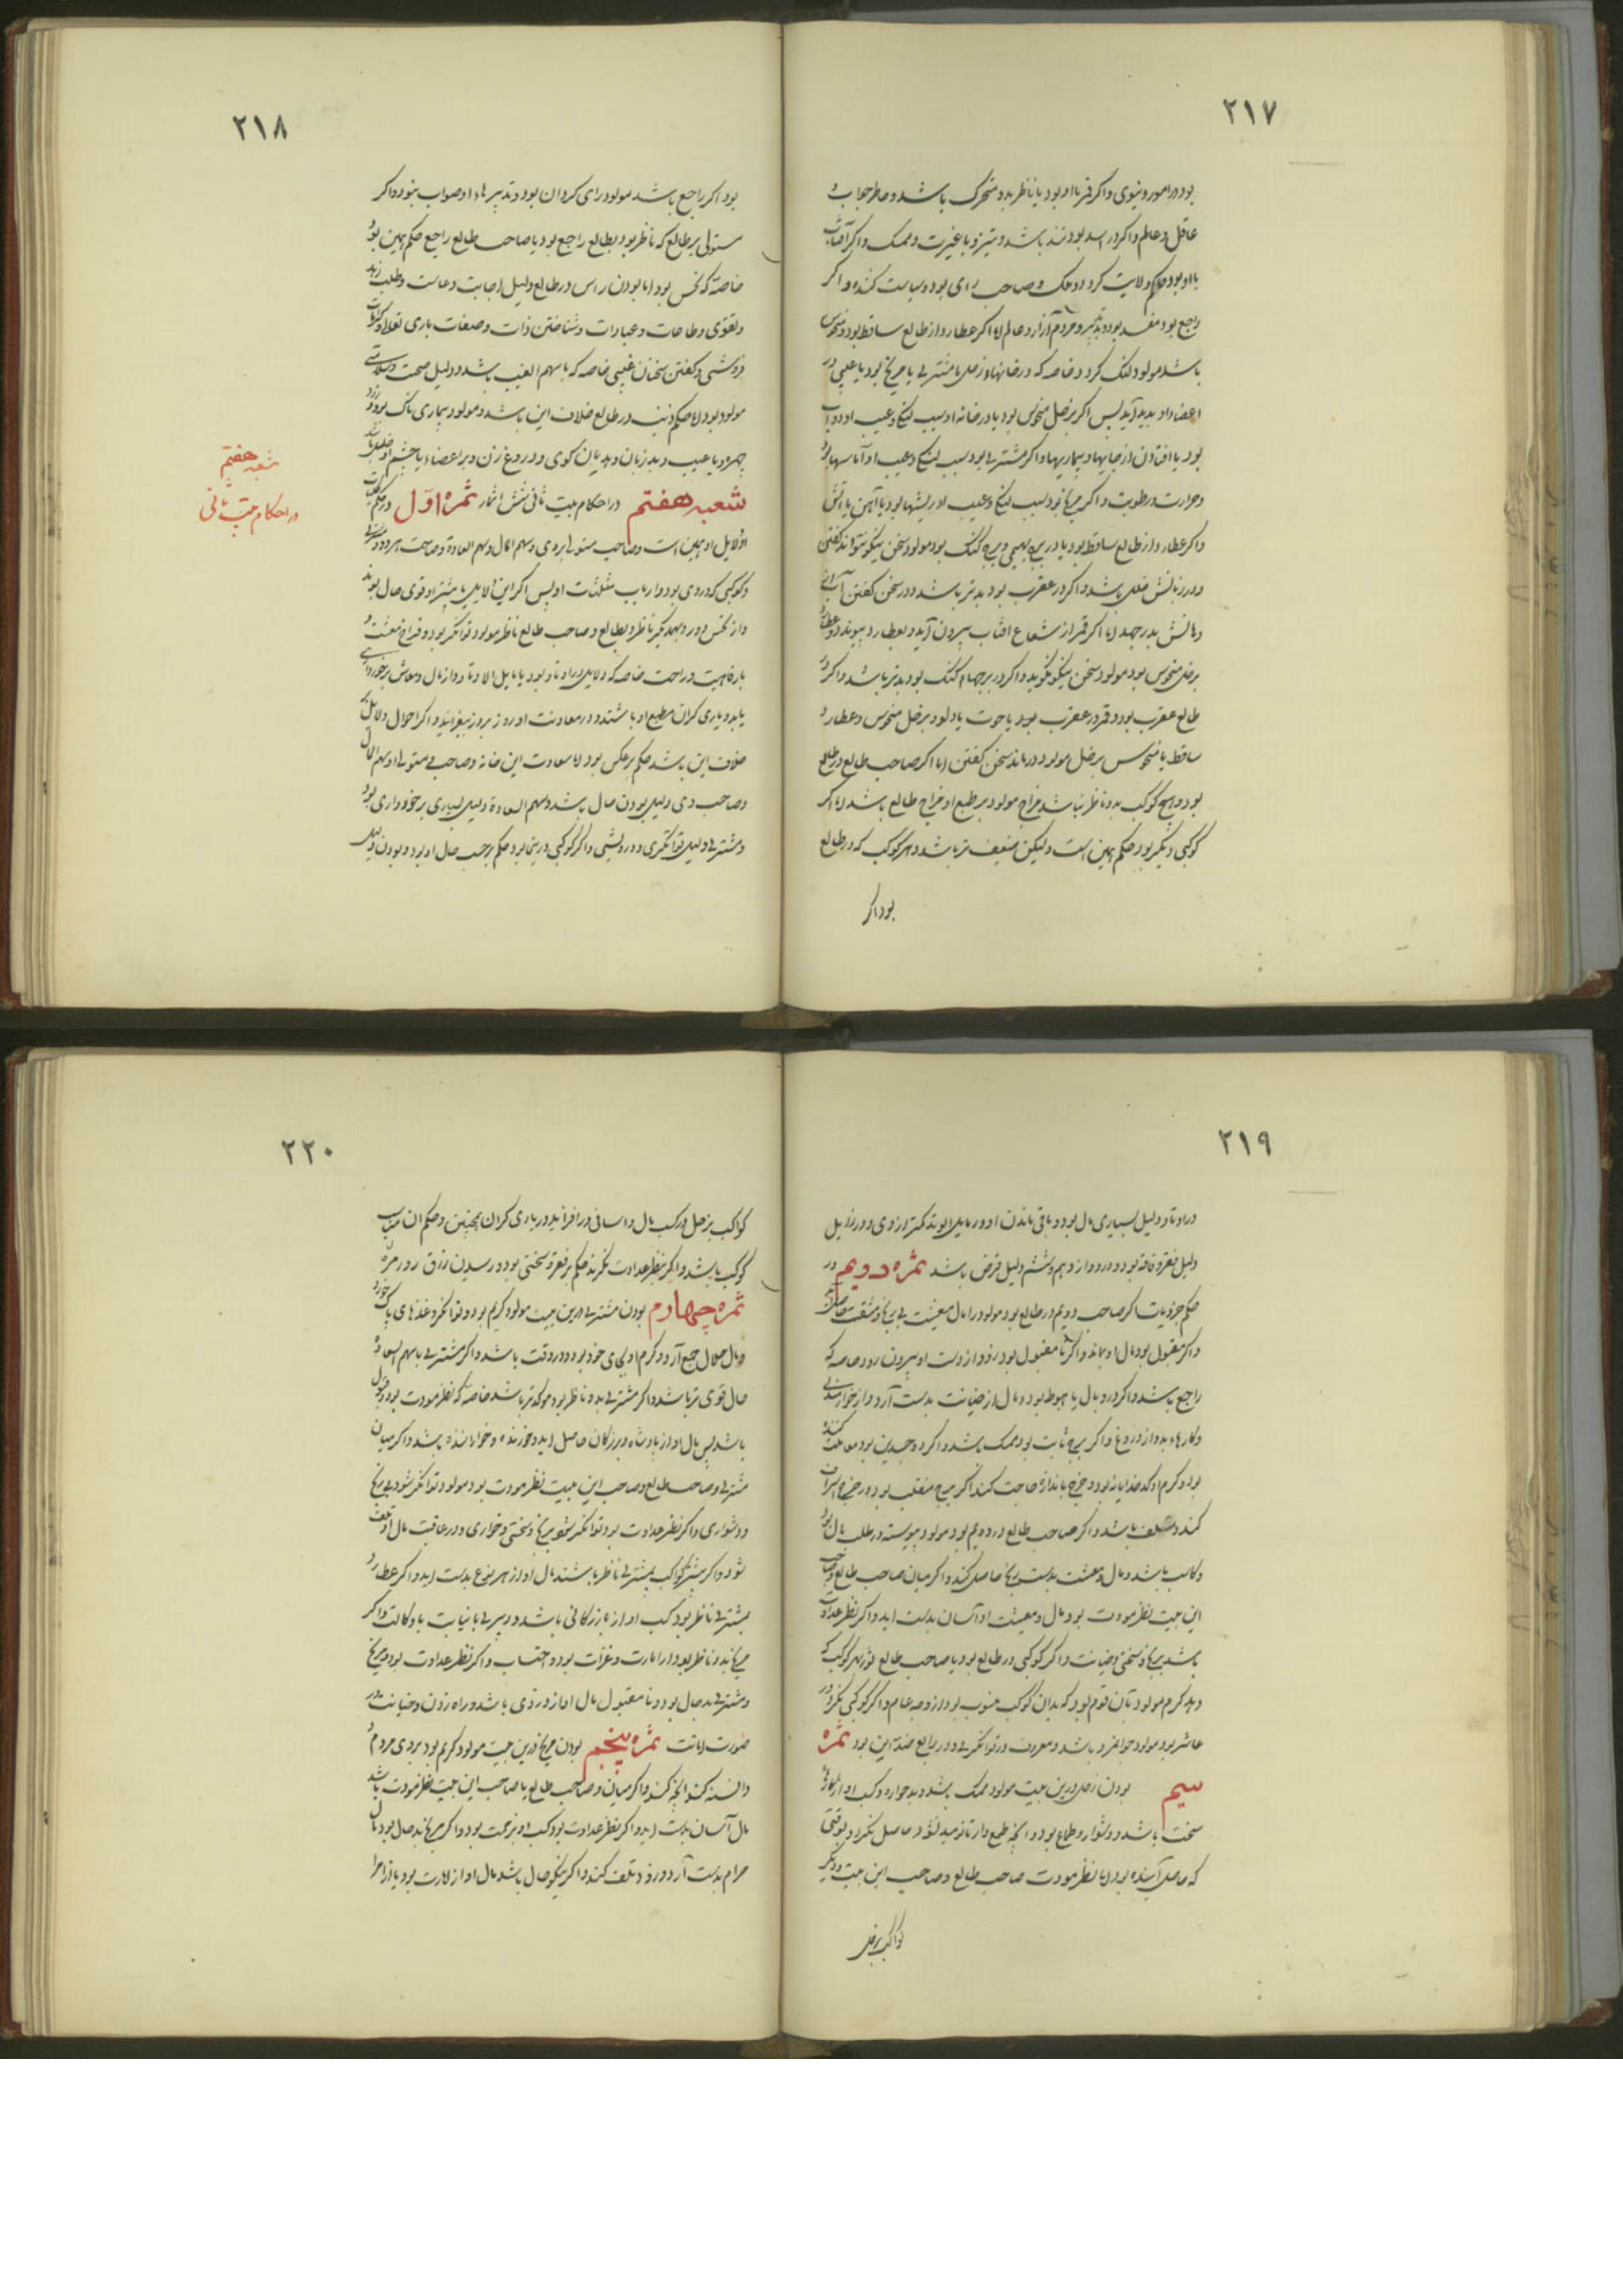 ٢١٧
بود در امور دنیوی و اگر قمر با او بود یا ناظر بدو متحرک باشد و حاضر جواب و
عاقل و عالم و اگر در اسد بود تند باشد و تیز و با غیرت و ممسک و اگر آفتاب
با او بود حاکم ولایت گردد و ملک و صاحب رای بود و سیاست کننده و اگر
راجع بود مفسد بود و بدتدبیر و مردم آزار و ظالم اما اگر عطارد از طالع ساقط بود و منحوس
باشد مولود لنگ گردد خاصه که در خانهاء زحل یا مشتری یا مریخ بود یا عیبی در
اعضاء او پدید آید پس اگر بزحل منحوس بود یا در خانه او سبب لنگی و عیب او دو آب
بود یا افتادن از جایها و بیماریها و اگر مشتری بود سبب لنگی و عیب او آماسها بود
و حرارت و رطوبت و اگر مریخ بود سبب لنگی و عیب او ریشها بود یا آهن یا آتش
و اگر عطارد از طالع ساقط بود یا در برج بهیمی و برج گنگ بود مولود سخن نیکو نتواند گفتن
و در زبانش خللی باشد و اگر در عقرب بود بدتر باشد و در سخن گفتن
دهانش بدر جهد اما اگر قمر از شعاع افتاب بیرون آید و بعطارد پیوندد و عطارد
بزحل منحوس بود مولود سخن نیکو نگوید و اگر در برجهاء گنگ بود بدتر باشد و اگر
طالع عقرب بود و قمر در عقرب بود یا حوت یا دلو و بزحل منحوس و عطارد
ساقط یا منحوس بزحل مولود درماند سخن گفتن اما اگر صاحب طالع در طالع
بود و هیچ کوکب بدو ناظر نباشد مزاج مولود بر طبع او مزاج طالع باشد اما اگر
کوکبی دیگر بود حکم همین است ولیکن ضعیف تر باشد و هر کوکب که در طالع
بود اگر
٢١٨
بود اگر راجع باشد مولود رای گردان بود و تدبیرهاء او صواب نبود و اگر
مستولی بر طالع که ناظر بود بطالع راجع بود یا صاحب طالع راجع حکم همین بود
خاصه که نحس بود اما بودن راس در طالع دلیل اجابت دعاست و طلب زهد
و تقوی و طاعات و عبادات و شناختن ذات و صفات باری تعالی و
و گفتن سخنان غیبی خاصه که با سهم الغیب باشد و دلیل صحت و سلامتی
مولود بود اما حکم ذنب در طالع خلاف این باشد و مولود بیماری ناک بود و زرد
چهره و یا عیب و بد زبان و هذیان گوی و دروغ زن و بر اعضاء یا چشم او خللی باشد
شعبه هفتم در احکام بیت ثانی شش اثمار ثمره اول در حکم کلیات
او دلایل او این است و صاحب مستولی بر وی و سهم المال و سهم السعادة و صاحب هر دو و مشتری
و کوکبی که در وی بود و ارباب مثلثات او پس اگر این دلایل یا بیشتر او قوی حال بوند
و از نحس دور و بیکدیگر ناظر و بطالع و صاحب طالع ناظر مولود توانگر بود و فراخ معیشت و
با رفاهیت و راحت خاصه که دلایل در اوتاد بود یا مایل الاوتاد و از مال و معاش برخورداری
یابد و یاری گران مطیع او باشند و در معاونت او روز بروز بیفزایند و اگر احوال دلایل
خلاف این باشد حکم بر عکس بود اما سعادت این خانه و صاحب مستولی و سهم المال
و صاحب وی دلیل بودن مال باشد و سهم السعادة دلیل بسیاری برخورداری بود
و مشتری دلیل توانگری و درویشی و اگر کوکبی درین بود حکم بر حسب حال او بود و بودن دلیل
شعبه هفتم
در احکام بیت ثانی
٢١٩
در اوتاد دلیل بسیاری مال بود و باقی ماندن او و در مایل الوتد کمتر از وی و در زایل
دلیل فقر و فاقه بود و در دوازدهم و ششم دلیل قرض باشد ثمره دویم در
حکم جزویات اگر صاحب دویم در طالع بود مولود را مال و معیشت بی رنج و مشقت حاصل شود
و اگر مقبول بود مال او بماند و اگر نا مقبول بود زود از دست او بیرون رود خاصه که
راجع باشد و اگر در وبال یا هبوط بود مال از خیانت بدست آرد و از خوارمندی
و کارهاء بد و از دروغ و اگر برج ثابت بود ممسک باشد و اگر ذو جسدین بود معاملت کننده
بود و کرم او کدخدایانه بود و خرج باندازه حاجت کند اگر برج منقلب بود در خرج اسراف
کند و متلف باشد و اگر صاحب طالع در دویم بود مولود پیوسته در طلب مال بود
و کاسب باشد و مال و معیشت بدست رنج حاصل کند و اگر میان صاحب طالع و صاحب
این بیت نظر مودت بود مال و معیشت او آسان بدست اید و اگر نظر عداوت
باشد برنج و سختی و خیانت و اگر کوکبی در طالع بود یا صاحب طالع بود بهر کوکب که
دهد کرم مولود بآن قوم بود که بدان کوکب منسوب بود از وجه عام و اگر کوکبی نگرد در
عاشر بود مولود جوانمرد باشد و معروف در توانگری و در رابع ضد این بود ثمره
سیم بودن زحل درین بیت مولود ممسک باشد و بدخواره و کسب او از کارهاء
سخت باشد و دشوار و طماع بود و آنچه طمع دارد تا نومید نشود حاصل نگردد و بوقتی
که حاصل آینده بود اما نظر مودت صاحب طالع و صاحب این بیت و دیگر
کواکب بزحل
٢٢٠
کواکب بزحل در کسب مال و اسانی در افزاید و در یاری گران همچنین و حکم ان مناسب
کوکب باشد و اگر بنظر عداوت نگرند حکم بر فقر و سختی بود و رسیدن رزق روز مره
ثمره چهارم بودن مشتری درین بیت مولود کریم بود و توانگر و غذاهای پاک خورد
و مال حلال جمع آرد و کرم او بجای خود بود و در وقت باشد و اگر مشتری با سهم السعادة
حال قوی تر باشد و اگر مشتری بدو ناظر بود موکدتر باشد خاصه که نظر مودت بود و قبول
باشد پس مال او از پادشاه و بزرگان حاصل اید و خورنده و خوراننده باشد و اگر میان
مشتری و صاحب طالع و صاحب این بیت نظر مودت بود مولود توانگر شود بی رنج
و دشواری و اگر نظر عداوت بود توانگر شود برنج و سختی و خواری و در عاقبت مال او تلف
شود و اگر بیشتر کواکب بمشتری ناظر باشند مال او از هر نوع بدست اید و اگر عطارد
بمشتری ناظر بود کسب او از بازرگانی باشد و دبیری یا نیابت یا وکالت و اگر
مریخ بدو ناظر بود از امارت و غزات بود و احتساب و اگر نظر عداوت بود و مریخ
و مشتری بد حال بود و نا مقبول مال او از دزدی باشد و راه زدن و خیانت در
صورت امانت ثمره پنجم بودن مریخ درین بیت مولود کریم بود بروی مردم و
دانسته کند آنچه کند و اگر میان و صاحب طالع یا صاحب این بیت نظر مودت باشد
مال آسان بدست اید و اگر نظر عداوت بود کسب او بزحمت بود و اگر مریخ بد حال بود مال
حرام بدست آرد و زود تلف کند و اگر نیکو حال باشد مال او از امارت بود یا از امرا